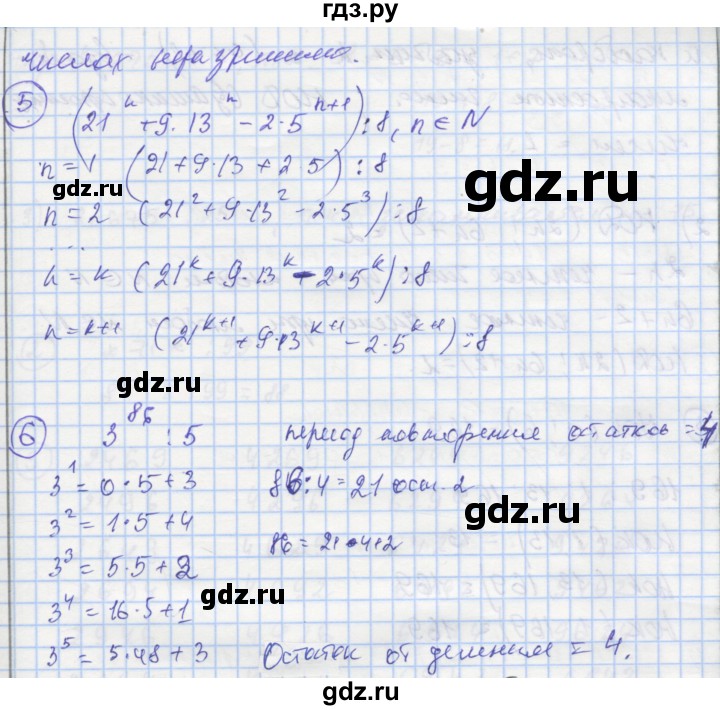 гдз.ру
числах неразрешимо.
5 (21^n + 9·13^n - 2·5^(n+1)) ⋮ 8, n ∈ N
n = 1 (21 + 9·13 + 2·5) ⋮ 8
gdz.ru
gdz.ru
n = 2 (21^2 + 9·13^2 - 2·5^3) ⋮ 8
...
n = k (21^k + 9·13^k - 2·5^k) ⋮ 8
n = k+1 (21^(k+1) + 9·13^(k+1) - 2·5^(k+1)) ⋮ 8
6 3^86 : 5 период повторения остатков = 4
3^1 = 0·5+3 86:4 = 21 ост. 2
gdz.ru
3^2 = 1·5+4
86 = 21·4+2
3^3 = 5·5+2
gdz.ru
3^4 = 16·5+1
3^5 = 5·48+3 Остаток от деления = 4.
gdz.ru
gdz.ru